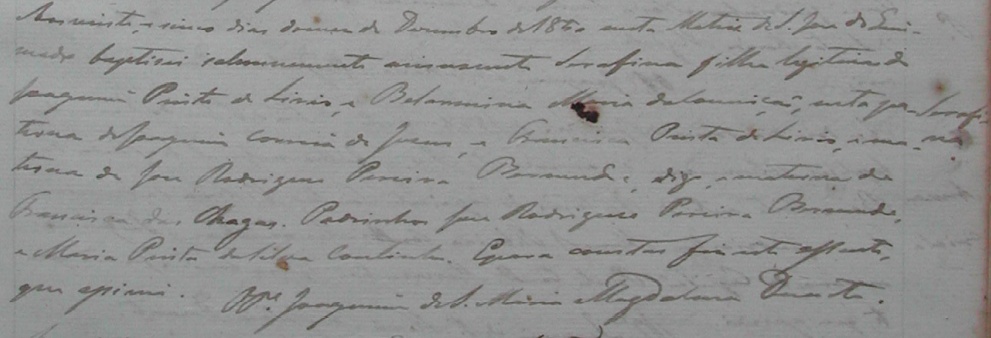 Aos vinte e sinco dias do mes de Dezembro de 1860 nesta Matriz de S. Jose de
baptisei solennemente a innocente Serafina filha legitima de
Joaquim Pinto de e Belarmina Maria da Conceiçaõ, neta pa- Serafi-
terna de Joaquim Correia de Jesus, e Francisca Pinta de e ma- na
terna de Jose Rodrigues Pereira digo, e materna de
Francisca das Chagas. Padrinhos Jose Rodrigues Pereira
e Maria Pinta da Silva Coutinho. E para constar fiz este assento,
que assinei. Joaquim de S. Maria Magdalena Duarte.